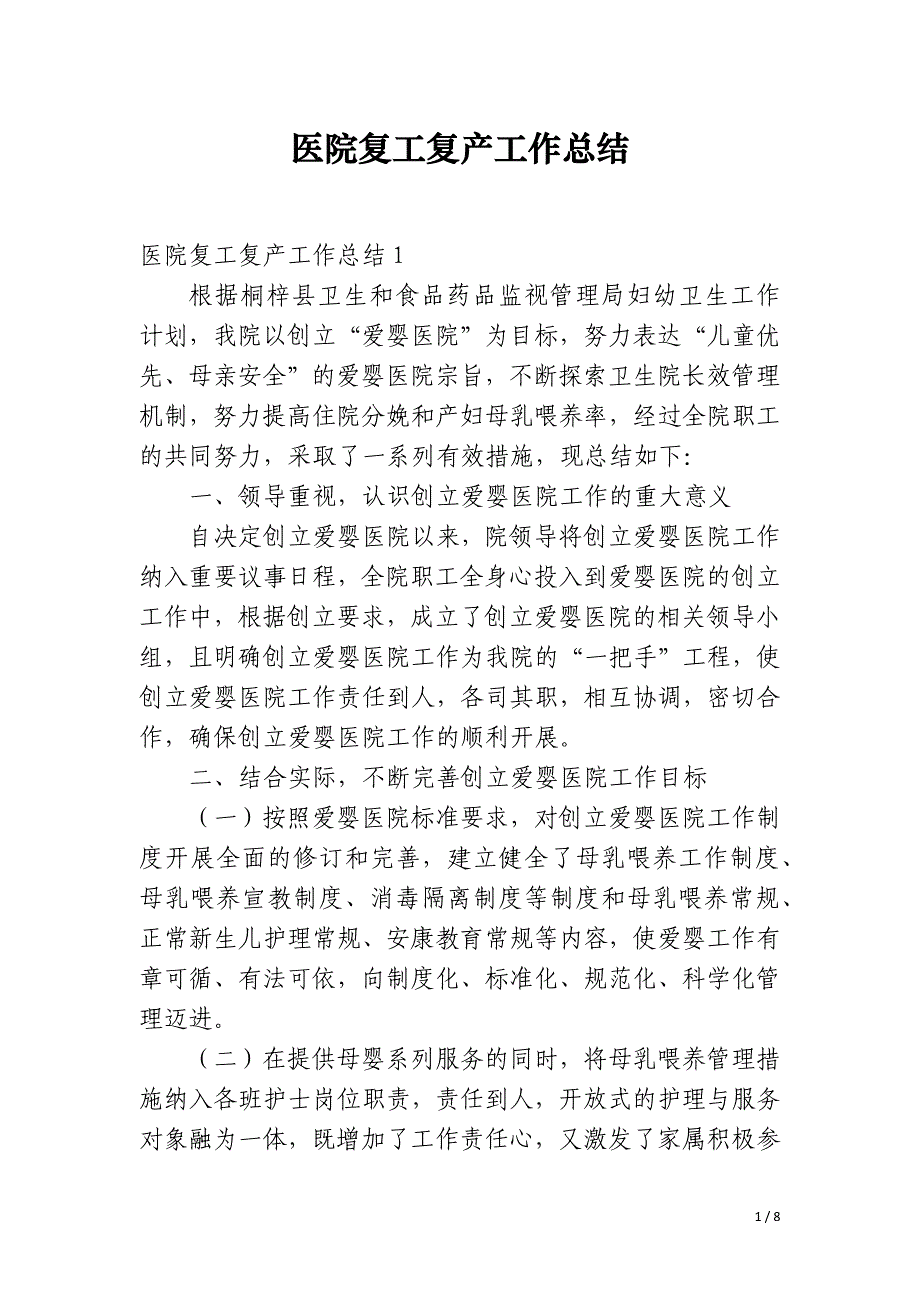 医院复工复产工作总结
医院复工复产工作总结1
根据桐梓县卫生和食品药品监视管理局妇幼卫生工作
计划，我院以创立“爱婴医院”为目标，努力表达“儿童优
先、母亲安全”的爱婴医院宗旨，不断探索卫生院长效管理
机制，努力提高住院分娩和产妇母乳喂养率，经过全院职工
的共同努力，采取了一系列有效措施，现总结如下：
一、领导重视，认识创立爱婴医院工作的重大意义
自决定创立爱婴医院以来，院领导将创立爱婴医院工作
纳入重要议事日程，全院职工全身心投入到爱婴医院的创立
工作中，根据创立要求，成立了创立爱婴医院的相关领导小
组，且明确创立爱婴医院工作为我院的“一把手”工程，使
创立爱婴医院工作责任到人，各司其职，相互协调，密切合
作，确保创立爱婴医院工作的顺利开展。
二、结合实际，不断完善创立爱婴医院工作目标
（一）按照爱婴医院标准要求，对创立爱婴医院工作制
度开展全面的修订和完善，建立健全了母乳喂养工作制度、
母乳喂养宣教制度、消毒隔离制度等制度和母乳喂养常规、
正常新生儿护理常规、安康教育常规等内容，使爱婴工作有
章可循、有法可依，向制度化、标准化、规范化、科学化管
理迈进。
（二）在提供母婴系列服务的同时，将母乳喂养管理措
施纳入各班护士岗位职责，责任到人，开放式的护理与服务
对象融为一体，既增加了工作责任心，又激发了家属积极参
1 / 8